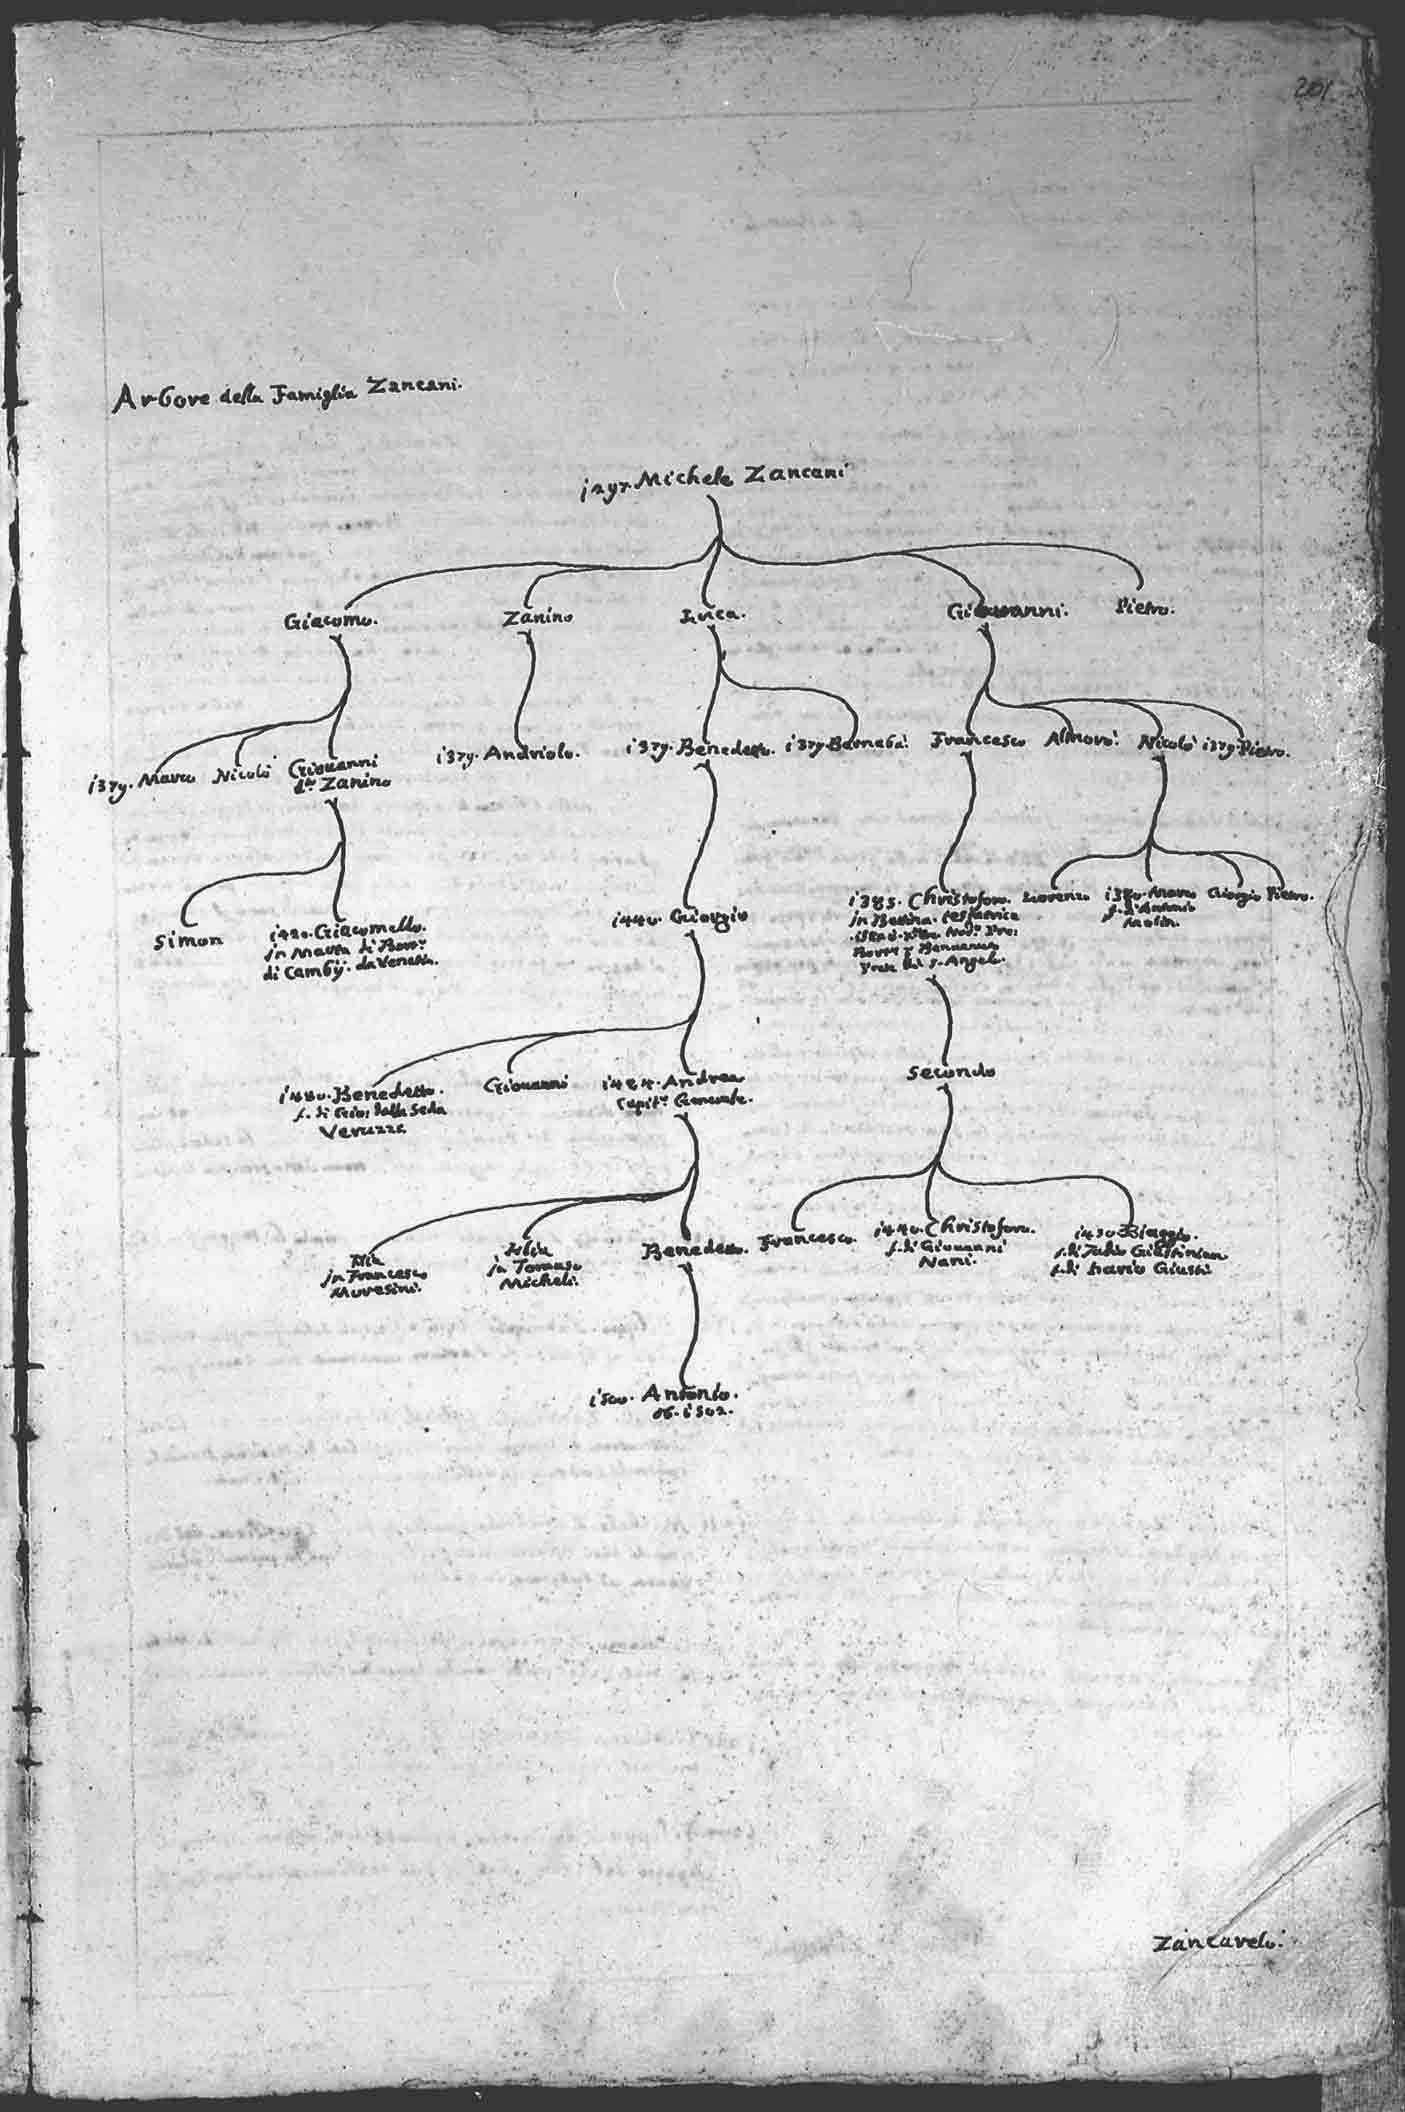 201
Arbore della Famiglia Zancani.
1297. Michele Zancani
Giacomo. Zanino Luca. Giovanni. Pietro.
1379. Marco Nicolò Giovanni
d.to Zanino
1379. Andriolo. 1379. Benedetto. 1379 Bernabà. Francesco Almorò. Nicolò 1379 Pietro.
Simon
1420. Giacomello.
in Maria di
di Cambij. da Venetia.
1440. Giorgio
1385. Christoforo.
in Bettina.
S. Angelo.
Lorenzo 1380. Marco Giorgio Pietro.
f. d'Antonio
Molin.
1480. Benedetto.
f. di Gio: dalla Seda
Veruzza
Giovanni
1484. Andrea
Capit.o Generale.
Secondo
in Francesco
Moresini.
in Tomaso
Micheli.
Benedetto.
Francesco.
1440. Christoforo.
f. di Giovanni
Nani.
1430 Biaggio.
f. di Giustinian
f. di Giusti
1500. Antonio.
ob. 1502.
Zancarelo.